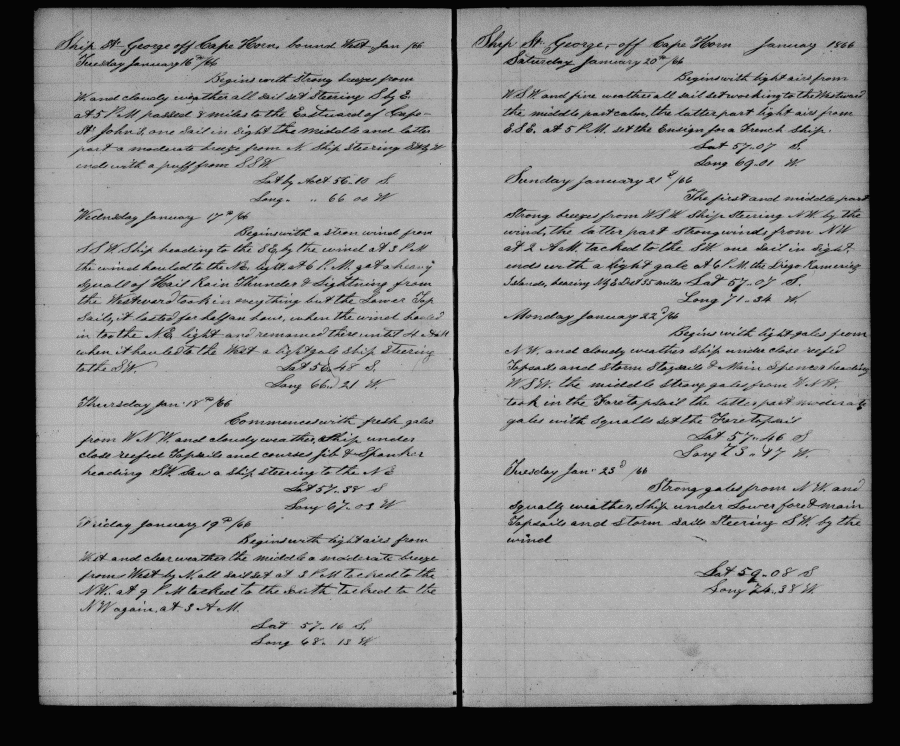 Ship St George off Cape Horn, bound West Jan /66
Tuesday January 16th /66
Begins with strong breezes from
W. and cloudy weather all sail set Steering S by E
at 5 P.M. passed 8 miles to the Eastward of Cape
St Johns, one sail in sight the middle and latter
part a moderate breeze from N Ship Steering
ends with a puff from SSW
Lat by Act 56.10 S.
Long. " 66 00 W
Wednesday January 17th /66
Begins with a stron wind from
S.S.W. Ship heading to the SE, by the wind at 3 P.M
the wind hauled to the NE, light, at 6 P.M. got a heavy
squall of Hail Rain Thunder & Lightning from
the Westward took in everything but the Lower Top
Sails, it lasted for half an hour, when the wind hauled
in too the N.E. light and remained there until 4 A.M
when it hauled to the West a light gale Ship Steering
to the SW
Lat 56.48 S.
Long 66.21 W
Thursday Jan 18th /66
Commences with fresh gales
from W.N.W. and cloudy weather, Ship under
close reefed Topsails and courses jib & Spanker
heading SW. Saw a ship steering to the N.E
Lat 57.38 S
Long 67.03 W
Friday January 19th /66
Begins with light airs from
West and clear weather the middle a moderate breeze
from West by N. all sail set at 3 P.M tacked to the
NW. at 9 P.M tacked to the South tacked to the
NW again, at 3 A.M.
Lat 57.16 S.
Long 68.13 W.
Ship St. George, off Cape Horn January 1866
Saturday January 20th /66
Begins with light airs from
W.S.W. and fine weather all sail set working to the Westward
the middle part calm, the latter part light airs from
E.S.E. at 5 P.M. set the Ensign for a French Ship.
Lat 57.07 S.
Long 69.01 W
Sunday January 21st /66
The first and middle part
strong breezes from W.S.W Ship Steering N.W. by the
wind, the latter part strong winds from NW
at 2 A.M. tacked to the SW one sail in sight,
ends with a light gale at 6 P.M. the Diego Rameriez
Islands, bearing Dist 55 miles Lat 57.07 S.
Long 71.34 W
Monday January 22d /66
Begins with light gales from
N.W. and cloudy weather Ship under close reefed
Topsails and Storm Staysails & Main Spencer heading
W.S.W. the middle strong gales from W.N.W.
took in the Fore topsail the latter part moderate
gales with Squalls set the Fore topsail
Lat 57.46 S
Long 73.47 W
Tuesday Jan: 23d /66
Strong gales from N.W. and
squally weather, Ship under Lower fore & main
Topsails and Storm Sails Steering S.W. by the
wind
Lat 59.08 S
Long 74.38 W.